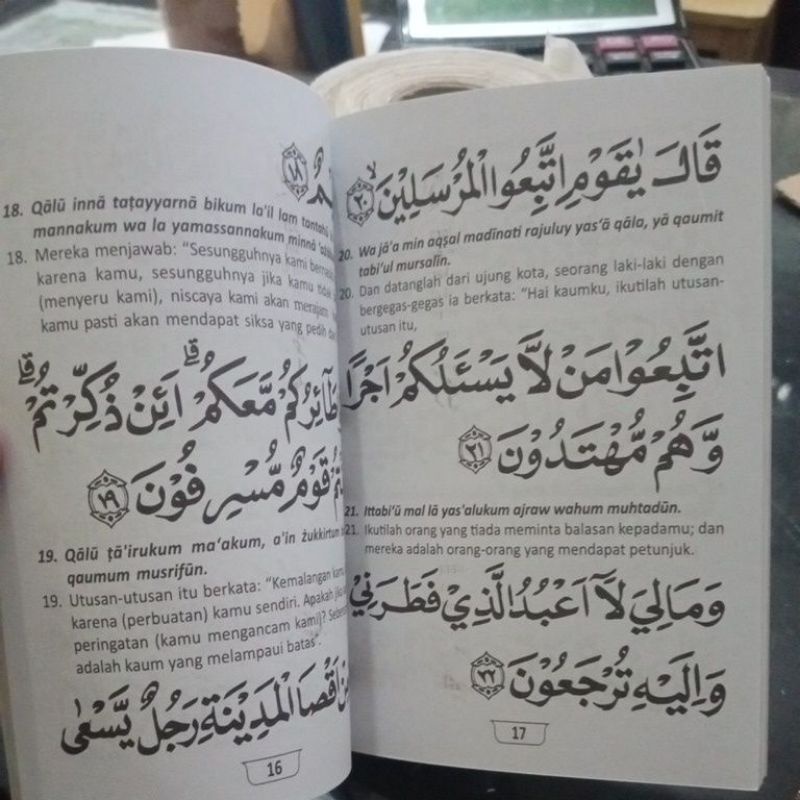 ١٨
18. Qālū innā taṭayyarnā bikum la'il lam tantahū
mannakum wa la yamassannakum minnā
18. Mereka menjawab: “Sesungguhnya kami
karena kamu, sesungguhnya jika kamu
(menyeru kami), niscaya kami akan merajam
kamu pasti akan mendapat siksa yang pedih
طَآئِرُكُمْ مَّعَكُمْ ۗ اَئِنْ ذُكِّرْتُمْ ۗ
قَوْمٌ مُّسْرِفُوْنَ ١٩
19. Qālū ṭā'irukum ma‘akum, a'in żukkirtum
qaumum musrifūn.
19. Utusan-utusan itu berkata: “Kemalangan
karena (perbuatan) kamu sendiri. Apakah
peringatan (kamu mengancam kami)?
adalah kaum yang melampaui batas”.
اَقْصَا الْمَدِيْنَةِ رَجُلٌ يَّسْعٰى
16
قَالَ يٰقَوْمِ اتَّبِعُوا الْمُرْسَلِيْنَ ۙ ٢٠
20. Wa jā'a min aqṣal madīnati rajuluy yas‘ā qāla, yā qaumit
tabi‘ul mursalīn.
20. Dan datanglah dari ujung kota, seorang laki-laki dengan
bergegas-gegas ia berkata: “Hai kaumku, ikutilah utusan-
utusan itu,
اتَّبِعُوْا مَنْ لَّا يَسْـَٔلُكُمْ اَجْرًا
وَّهُمْ مُّهْتَدُوْنَ ٢١
21. Ittabi‘ū mal lā yas'alukum ajraw wahum muhtadūn.
21. Ikutilah orang yang tiada meminta balasan kepadamu; dan
mereka adalah orang-orang yang mendapat petunjuk.
وَمَا لِيَ لَآ اَعْبُدُ الَّذِيْ فَطَرَنِيْ
وَاِلَيْهِ تُرْجَعُوْنَ ٢٢
17